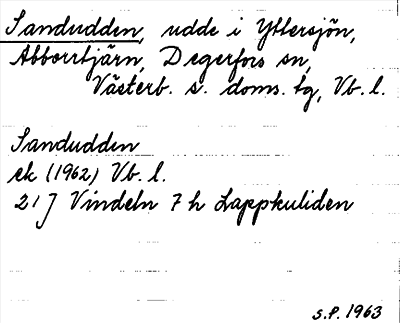 Sandudden, udde i Yttersjön,
Abborrtjärn, Degerfors sn,
Västerb. s. doms. tg, Vb. l.
Sandudden
ek (1962) Vb. l.
21 J Vindeln 7 h Lappkuliden
S.P. 1963